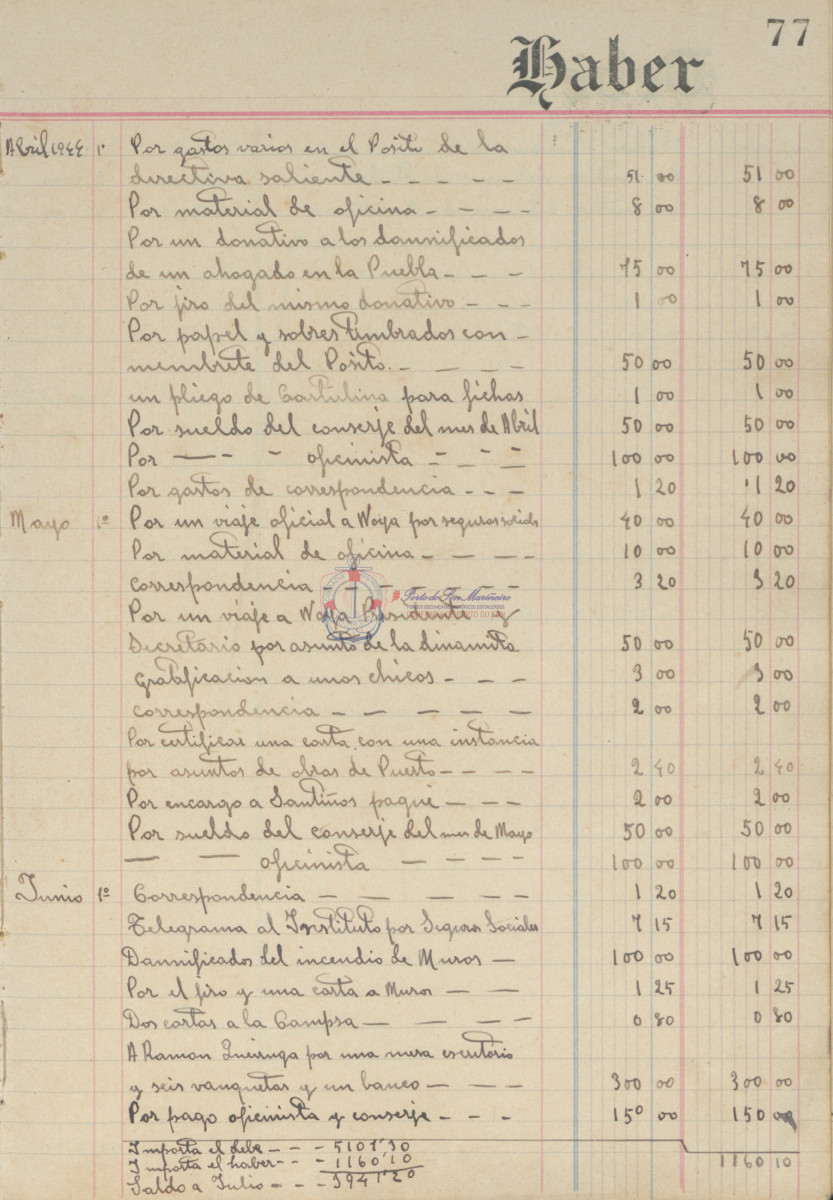 77
Haber
Abril 1944 1º Por gastos varios en el Posito de la
directiva saliente - - - - - 51 00 51 00
Por material de oficina - - - - 8 00 8 00
Por un donativo a los dannificados
de un ahogado en la Puebla - - - 75 00 75 00
Por jiro del mismo donativo - - - 1 00 1 00
Por papel y sobres timbrados con -
membrete del Posito. - - - - - 50 00 50 00
un pliego de Cartulina para fichas 1 00 1 00
Por sueldo del conserje del mes de Abril 50 00 50 00
Por — - - oficinista - - - - 100 00 100 00
Por gastos de correspondencia - - - 1 20 1 20
Mayo 1º Por un viaje oficial a Noya por seguros socials 40 00 40 00
Por material de oficina - - - - 10 00 10 00
correspondencia - - - - - 3 20 3 20
Por un viaje a Noya Presidente y
Secretario por asunto de la dinamita 50 00 50 00
gratificacion a unos chicos - - - 3 00 3 00
correspondencia - - - - - 2 00 2 00
Por certificar una carta con una instancia
por asuntos de obras de Puerto - - - - 2 40 2 40
Por encargo a Santiños pagué - - - 2 00 2 00
Por sueldo del conserje del mes de Mayo 50 00 50 00
— — oficinista — - - - 100 00 100 00
Junio 1º Correspondencia - - - - 1 20 1 20
Telegrama al Instituto por Seguros Sociales 7 15 7 15
Dannificados del incendio de Muros - 100 00 100 00
Por el jiro y una carta a Muros - - 1 25 1 25
Dos cartas a la Campsa - - - - 0 80 0 80
A Ramon Queiruga por una mesa escritório
y seis vanquetas y un banco - - - 300 00 300 00
Por pago oficinista y conserje - - - 150 00 150 00
Importa el debe - - - 5101'30
Importa el haber - - - 1160'10 1160 10
Saldo a Julio - - - 3941'20
Porto do Son Mariñeiro